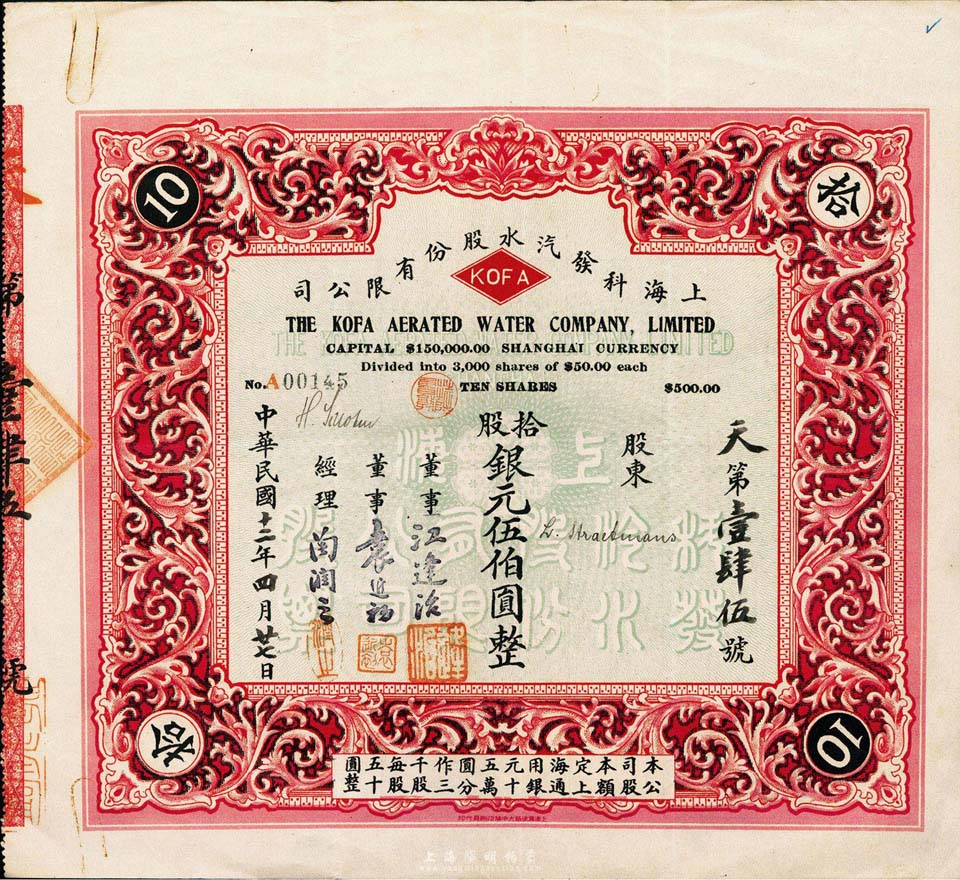 10
拾
上海科發汽水股份有限公司
KOFA
THE KOFA AERATED WATER COMPANY, LIMITED
CAPITAL $150,000.00 SHANGHAI CURRENCY
Divided into 3,000 shares of $50.00 each
No. A00145
TEN SHARES
$500.00
天第壹肆伍號
股東
L. Straetmans
拾股
銀元伍伯圓整
董事 江逢治
董事 袁近初
經理
中華民國十二年四月廿七日
拾
10
本公司股本額定上海通用銀元十五萬圓分作三千股每股五十圓整
第壹肆伍號